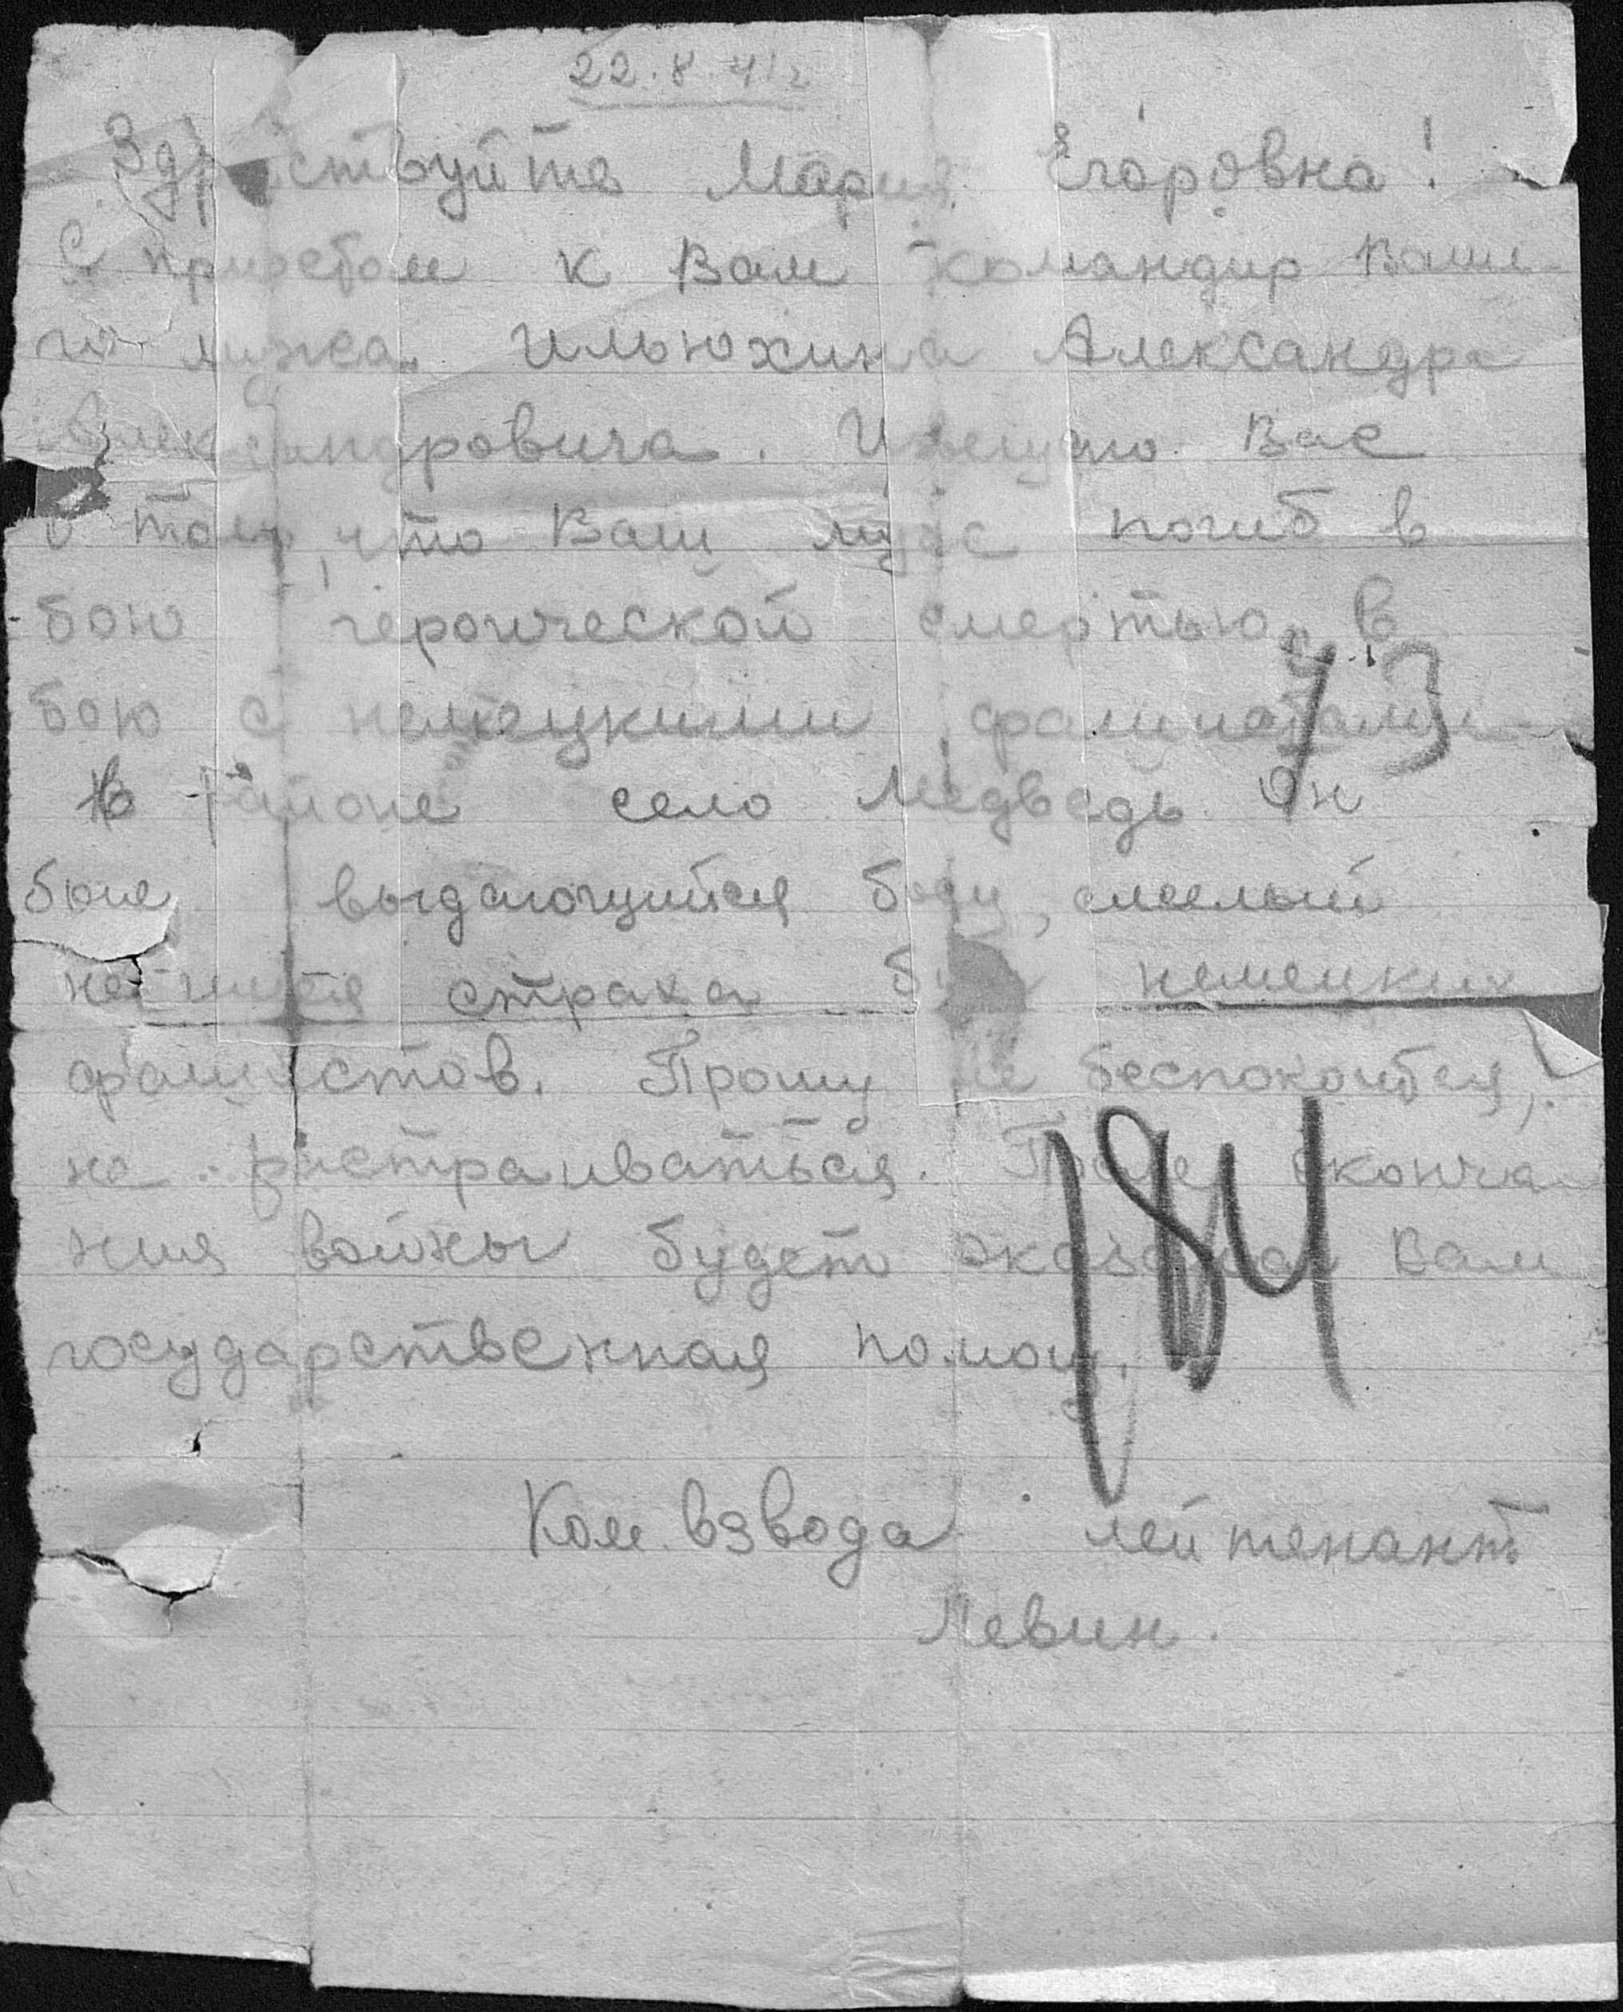 22.8.41 г
Здравствуйте Мария Егоровна!
С приветом к Вам командир Ваше-
го мужа Ильюхина Александра
Александровича. Извещаю Вас
о том, что Ваш муж погиб в
бою героической смертью, в
73
бою с немецкими фашистами
В районе село Медведь. Он
был выдающийся боец, смелый
не имея страха бил немецких
фашистов. Прошу не беспокойтесь,
не растраиваться. После оконча-
184
ния войны будет оказана Вам
государственная помощ.
Ком. взвода лейтенант
Левин.